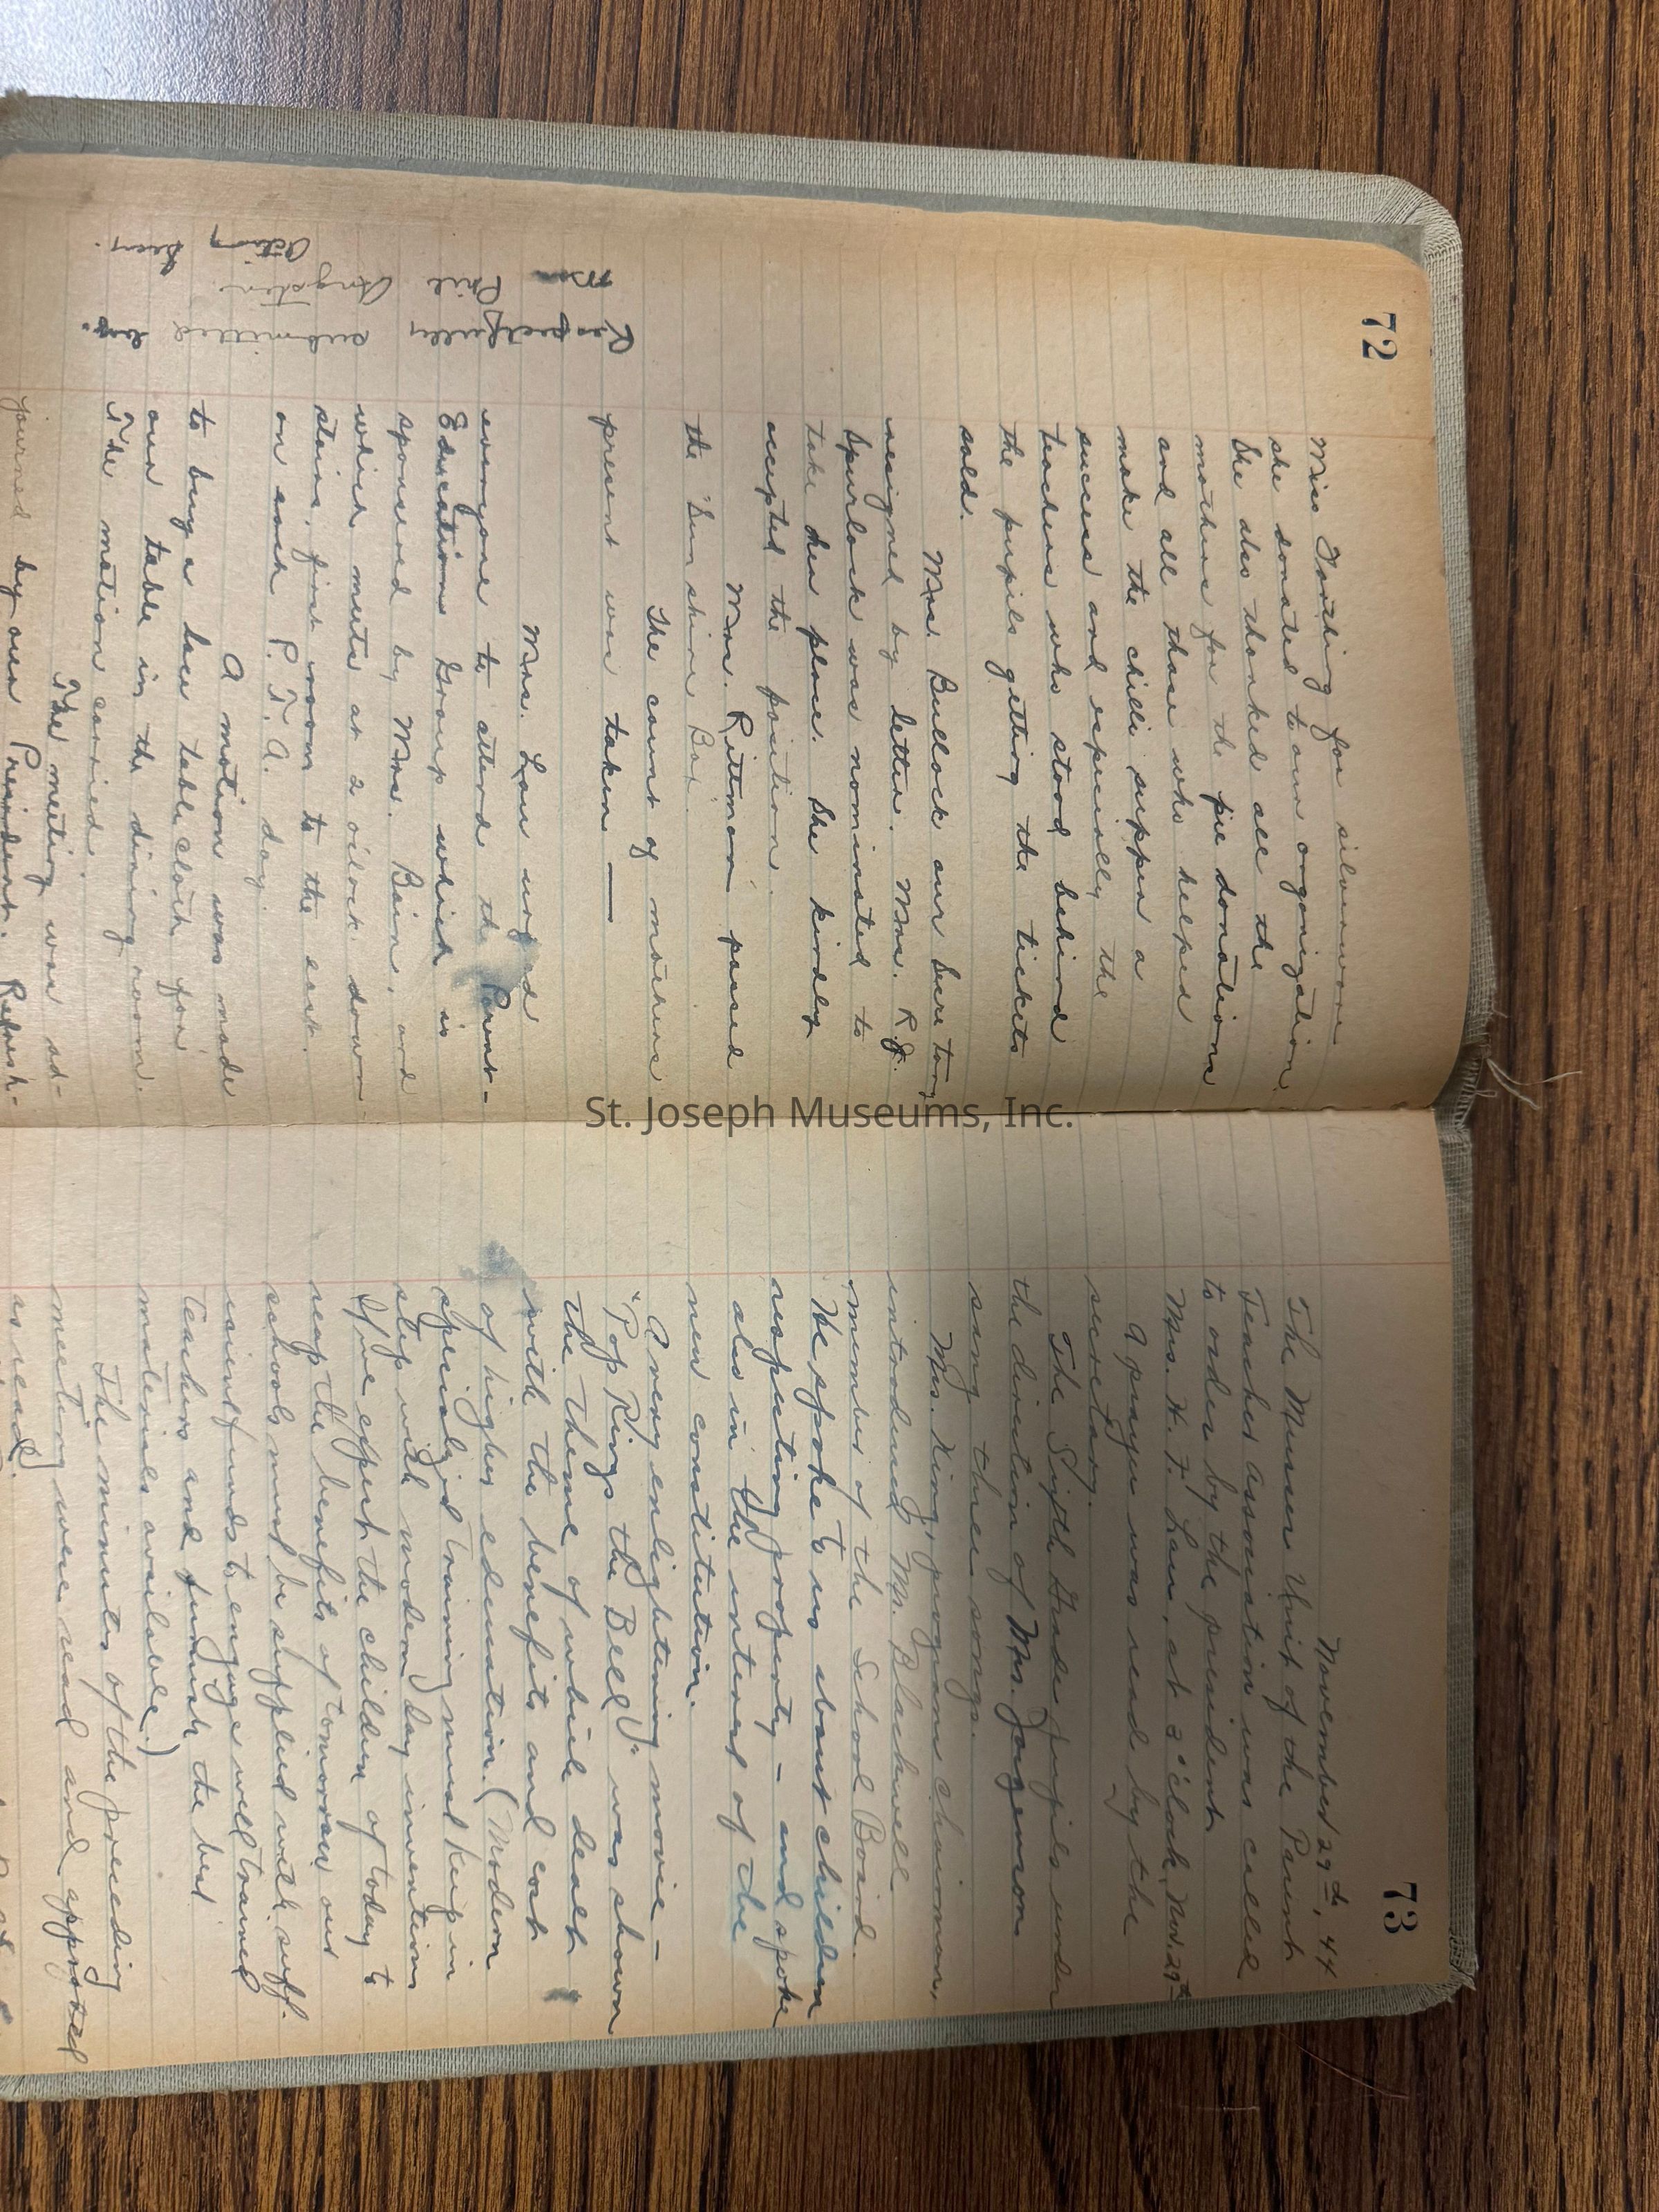 72
Miss Gosking for silverware
she donated to our organization.
She also thanked all the
mothers for the pie donations
and all those who helped
make the chilli supper a
success and especially the
teachers who stood behind
the pupils getting the tickets
sold.
Mrs. Bullock our Secretary
resigned by letter. Mrs. R.J.
Spurlock was nominated to
take her place. She kindly
accepted the position.
Mrs. Rittman passed
the Sun shine Box.
The count of mothers
present was taken —
Mrs. Lau urged
everyone to attend the Parent-
Education Group which is
sponsored by Mrs. Bain, and
which meets at 2 o'clock down
stairs, first room to the east.
on each P.T.A. day.
A motion was made
to buy a lace table cloth for
our table in the dining room.
The motion carried.
The meeting was ad-
journed by our President. Refresh-
Respectfully submitted by.
Mrs Phil Angstin
Acting Secy.
73
November 29th, 44
The Musser Unit of the Parent
Teacher Association was called
to order by the president
Mrs. H. F. Lau, at 2 o'clock, Nov 29th
A prayer was read by the
secretary.
The Fifth Grade pupils under
the direction of Mrs. Jorgenson
sang three songs.
Mrs. King, program chairman,
introduced Mr. Blackwell
member of the School Board.
He spoke to us about children
respecting property – and spoke
also in the interest of the
new constitution.
A very enlightening movie –
"Pop Rings the Bell". was shown
the theme of which dealt
with the benefits and cost
of higher education. (Modern
specialized training must keep in
step with modern day inventions
If we expect the children of today to
reap the benefits of tomorrow our
schools must be supplied with suff-
icient funds to engage well trained
teachers and furnish the best
materials available.)
The minutes of the preceeding
meeting were read and approved
as read.
St. Joseph Museums, Inc.